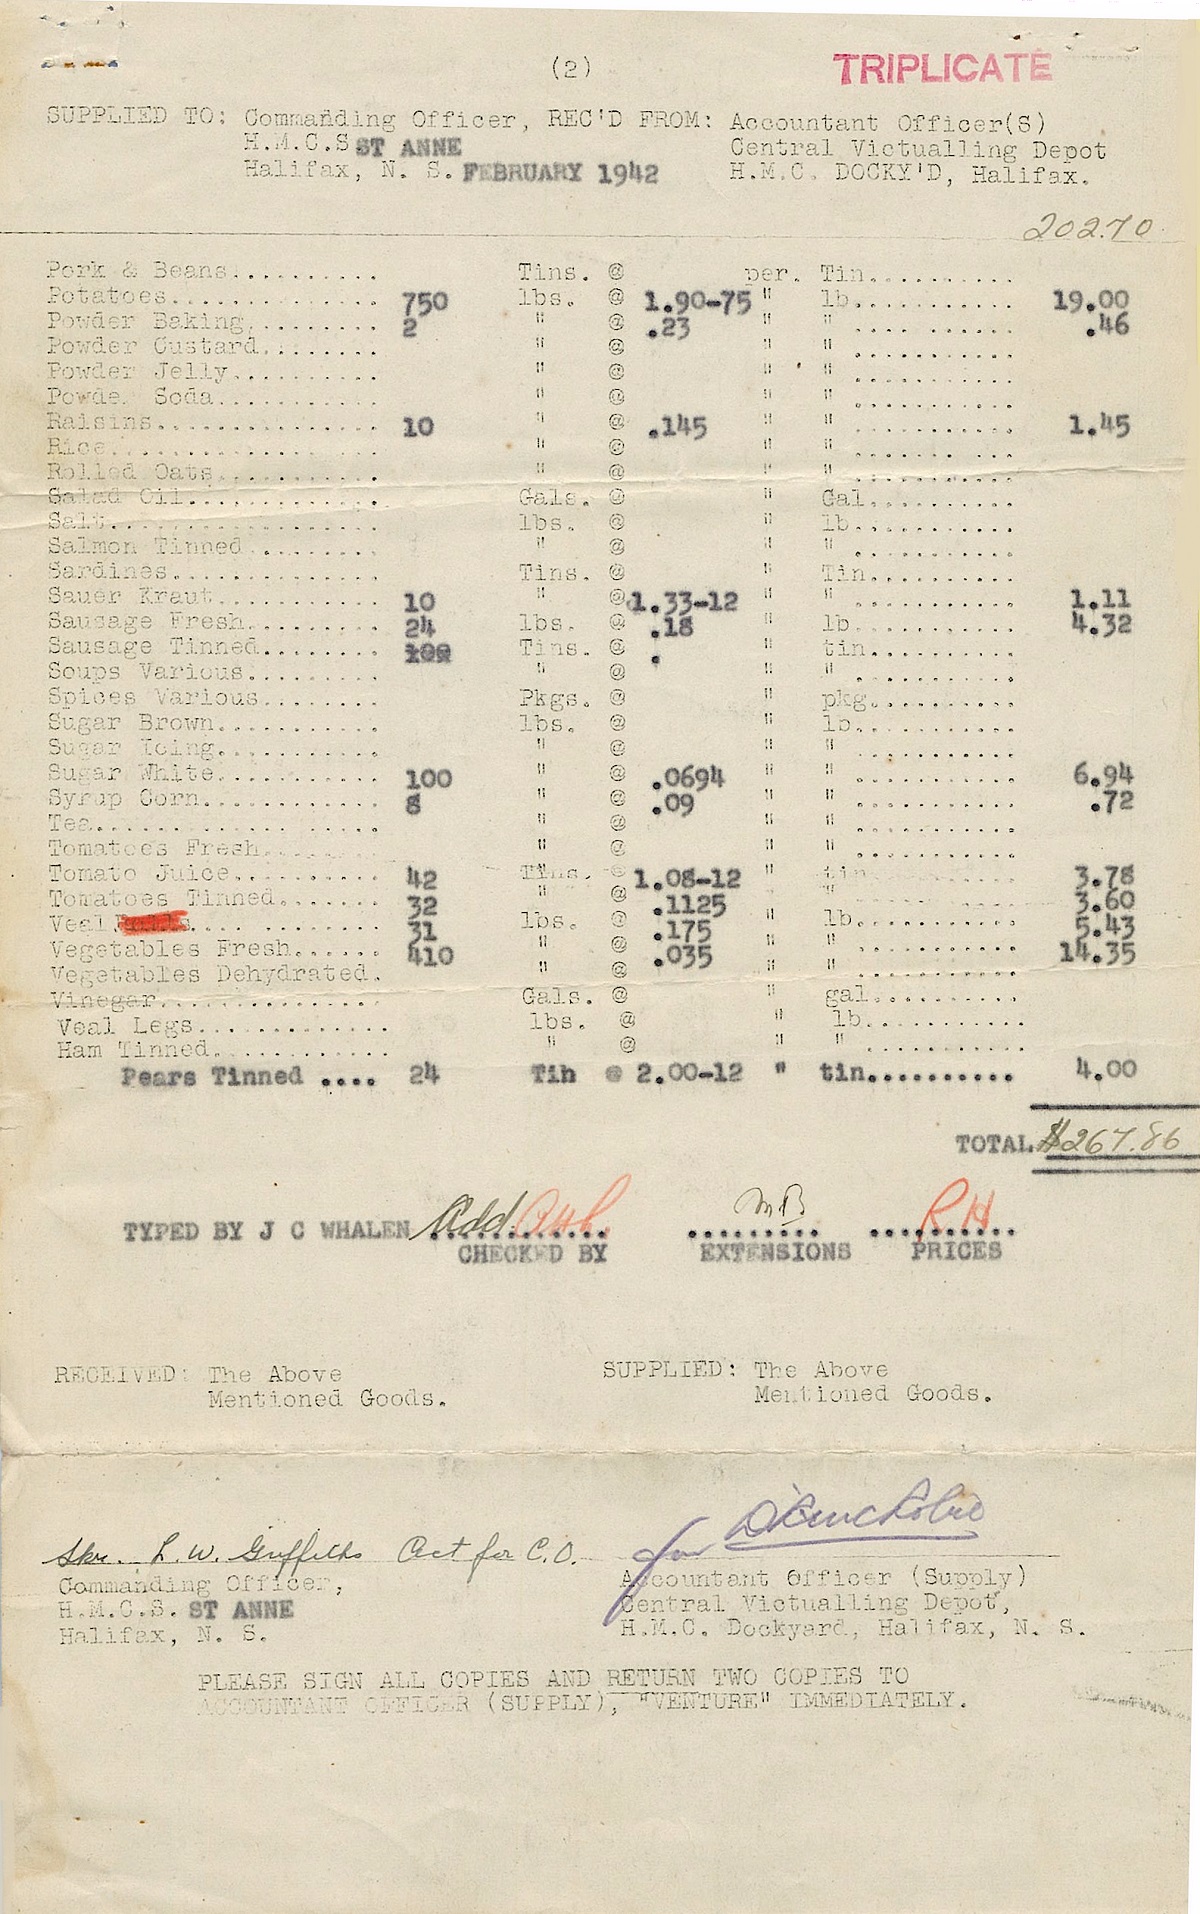 (2) TRIPLICATE
SUPPLIED TO: Commanding Officer, REC'D FROM: Accountant Officer(S)
H.M.C.S ST ANNE Central Victualling Depot
Halifax, N. S. FEBRUARY 1942 H.M.C. DOCKY'D, Halifax.
202.70
Pork & Beans.......... Tins. @ per. Tin..........
Potatoes............... 750 lbs. @ 1.90-75 " lb........... 19.00
Powder Baking......... 2 " @ .23 " " ........... .46
Powder Custard........ " @ " " ...........
Powder Jelly.......... " @ " " ...........
Powder Soda........... " @ " " ...........
Raisins............... 10 " @ .145 " " ........... 1.45
Rice.................. " @ " " ...........
Rolled Oats........... " @ " " ...........
Salad Oil............. Gals. @ " Gal..........
Salt.................. lbs. @ " lb...........
Salmon Tinned......... " @ " " ...........
Sardines.............. Tins. @ " Tin..........
Sauer Kraut........... 10 " @ 1.33-12 " " ........... 1.11
Sausage Fresh......... 24 lbs. @ .18 " lb........... 4.32
Sausage Tinned........ Tins. @ . " tin..........
Soups Various......... " @ " " ...........
Spices Various........ Pkgs. @ " pkg..........
Sugar Brown........... lbs. @ " lb...........
Sugar Icing........... " @ " " ...........
Sugar White........... 100 " @ .0694 " " ........... 6.94
Syrup Corn............ 8 " @ .09 " " ........... .72
Tea................... " @ " " ...........
Tomatoes Fresh........ " @ " " ...........
Tomato Juice.......... 42 Tins. @ 1.08-12 " tin.......... 3.78
Tomatoes Tinned....... 32 " @ .1125 " " ........... 3.60
Veal ............ 31 lbs. @ .175 " lb........... 5.43
Vegetables Fresh...... 410 " @ .035 " " ........... 14.35
Vegetables Dehydrated. " @ " " ...........
Vinegar............... Gals. @ " gal..........
Veal Legs............. lbs. @ " lb...........
Ham Tinned............ " @ " " ...........
Pears Tinned .... 24 Tin @ 2.00-12 " tin.......... 4.00
TOTAL $267.86
TYPED BY J C WHALEN Add. ............ MB ......... RH ..........
CHECKED BY EXTENSIONS PRICES
RECEIVED: The Above SUPPLIED: The Above
Mentioned Goods. Mentioned Goods.
Skr. L. W. Griffiths Act for C.O. for
Commanding Officer, Accountant Officer (Supply)
H.M.C.S. ST ANNE Central Victualling Depot,
Halifax, N. S. H.M.C. Dockyard, Halifax, N. S.
PLEASE SIGN ALL COPIES AND RETURN TWO COPIES TO
ACCOUNTANT OFFICER (SUPPLY), "VENTURE" IMMEDIATELY.